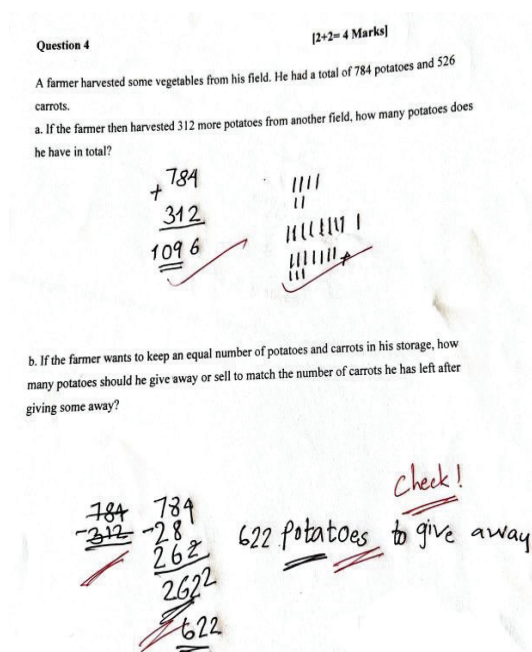 Question 4
[2+2= 4 Marks]
A farmer harvested some vegetables from his field. He had a total of 784 potatoes and 526
carrots.
a. If the farmer then harvested 312 more potatoes from another field, how many potatoes does
he have in total?
784
+
312
1096
b. If the farmer wants to keep an equal number of potatoes and carrots in his storage, how
many potatoes should he give away or sell to match the number of carrots he has left after
giving some away?
Check!
784 784
-312 -28
262
2622
622
622 potatoes to give away